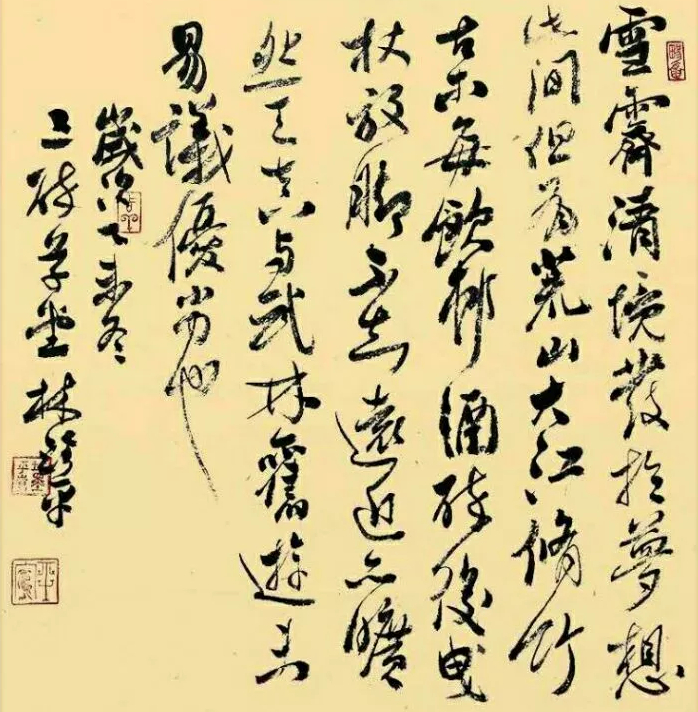 雪霽清境發於夢想
此間但有荒山大江脩竹
古木每飲村酒醉後曳
杖放脚不知遠近亦曠
然天真與武林舊游未
易議優劣也
歲次丁未冬
三醉草堂林